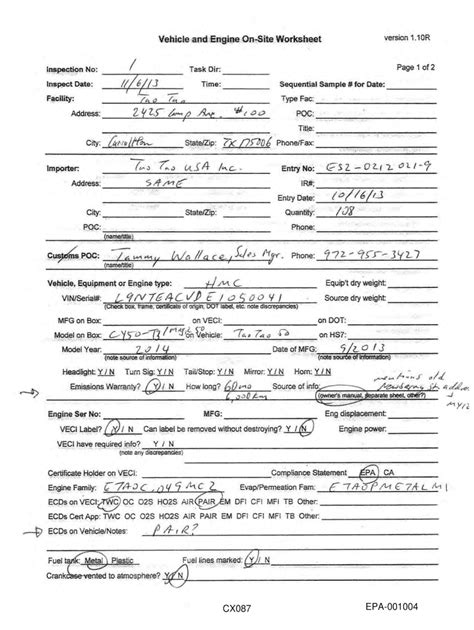 Vehicle and Engine On-Site Worksheet version 1.10R
Inspection No: 1 Task Dir: Page 1 of 2
Inspect Date: 11/6/13 Time: Sequential Sample # for Date:
Facility: Tao Tao Type Fac:
Address: 2425 Camp Ave, #100 POC:
Title:
City: Carrollton State/Zip: TX 75006 Phone/Fax:
Importer: Tao Tao USA Inc. Entry No: ES2-0212021-9
Address: SAME IR#:
Entry Date: 10/16/13
City: State/Zip: Quantity: 108
POC: Phone:
(name/title)
Customs POC: Tammy Wallace, Sales Mgr. Phone: 972-955-3427
(name/title)
Vehicle, Equipment or Engine type: HMC Equip't dry weight:
VIN/Serial#: L9NTEACVDE1050041 Source dry weight:
(Check box, frame, certificate of origin, DOT label, etc. note discrepancies)
MFG on Box: on VECI: on DOT:
Model on Box: on Vehicle: Tao Tao 50 on HS7:
Model Year: 2014 Date of MFG: 9/2013
(note source of information) (note source of information)
Headlight: Y / N Turn Sig: Y / N Tail/Stop: Y / N Mirror: Y / N Horn: Y / N
mentions old
Emissions Warranty? Y / N How long? 60 mo Source of info:
6,000 km (owner's manual, separate sheet, other?)
Engine Ser No: MFG: Eng displacement:
VECI Label? Y / N Can label be removed without destroying? Y / N Engine power:
VECI have required info? Y / N
(note any discrepancies)
Certificate Holder on VECI: Compliance Statement EPA CA
Engine Family: ETAOC.049MC2 Evap/Permeation Fam: ETAOPMETALM1
ECDs on VECI: TWC OC O2S HO2S AIR PAIR EM DFI CFI MFI TB Other:
ECDs Cert App: TWC OC O2S HO2S AIR PAIR EM DFI CFI MFI TB Other:
ECDs on Vehicle/Notes: PAIR?
Fuel tank: Metal Plastic Fuel lines marked: Y / N
Crankcase vented to atmosphere? Y / N
CX087 EPA-001004